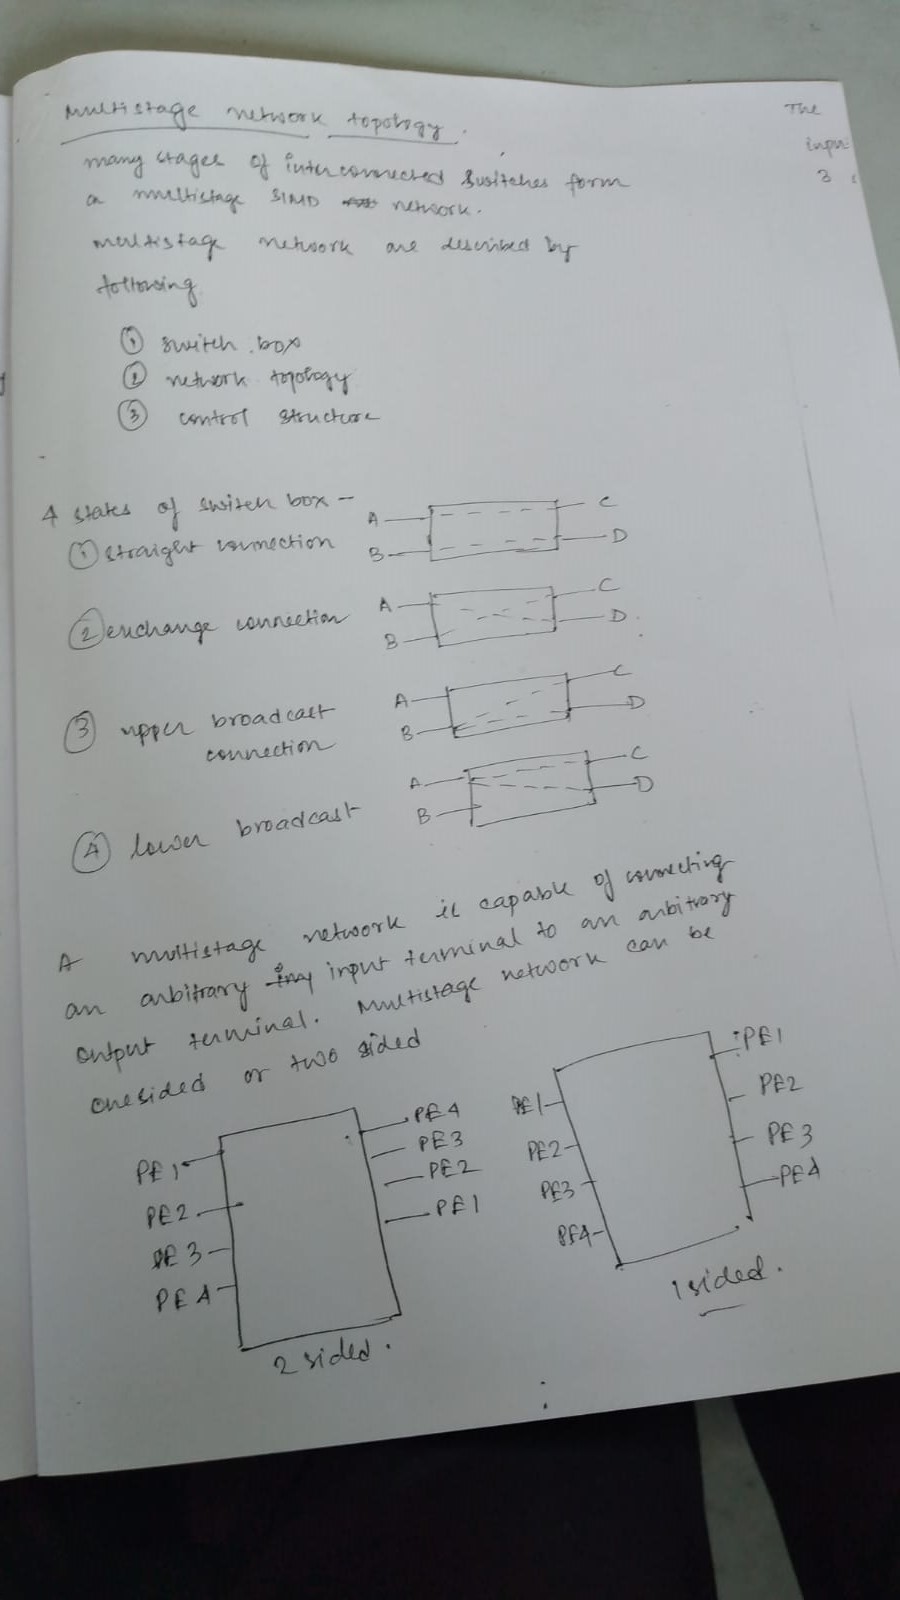 Multistage network topology.
many stages of interconnected switches form
a multistage SIMD network.
multistage network are described by
following
① switch box
② network topology
③ control structure
4 states of switch box -
① straight connection
A C
B D
② exchange connection
A C
B D
③ upper broadcast
connection
A C
B D
④ lower broadcast
A C
B D
A multistage network is capable of connecting
an arbitrary input terminal to an arbitrary
output terminal. Multistage network can be
onesided or two sided
PE1 PE4
PE2 PE3
PE3 PE2
PE4 PE1
2 sided.
PE1 PE1
PE2 PE2
PE3 PE3
PE4 PE4
1 sided.
The
inpu
3